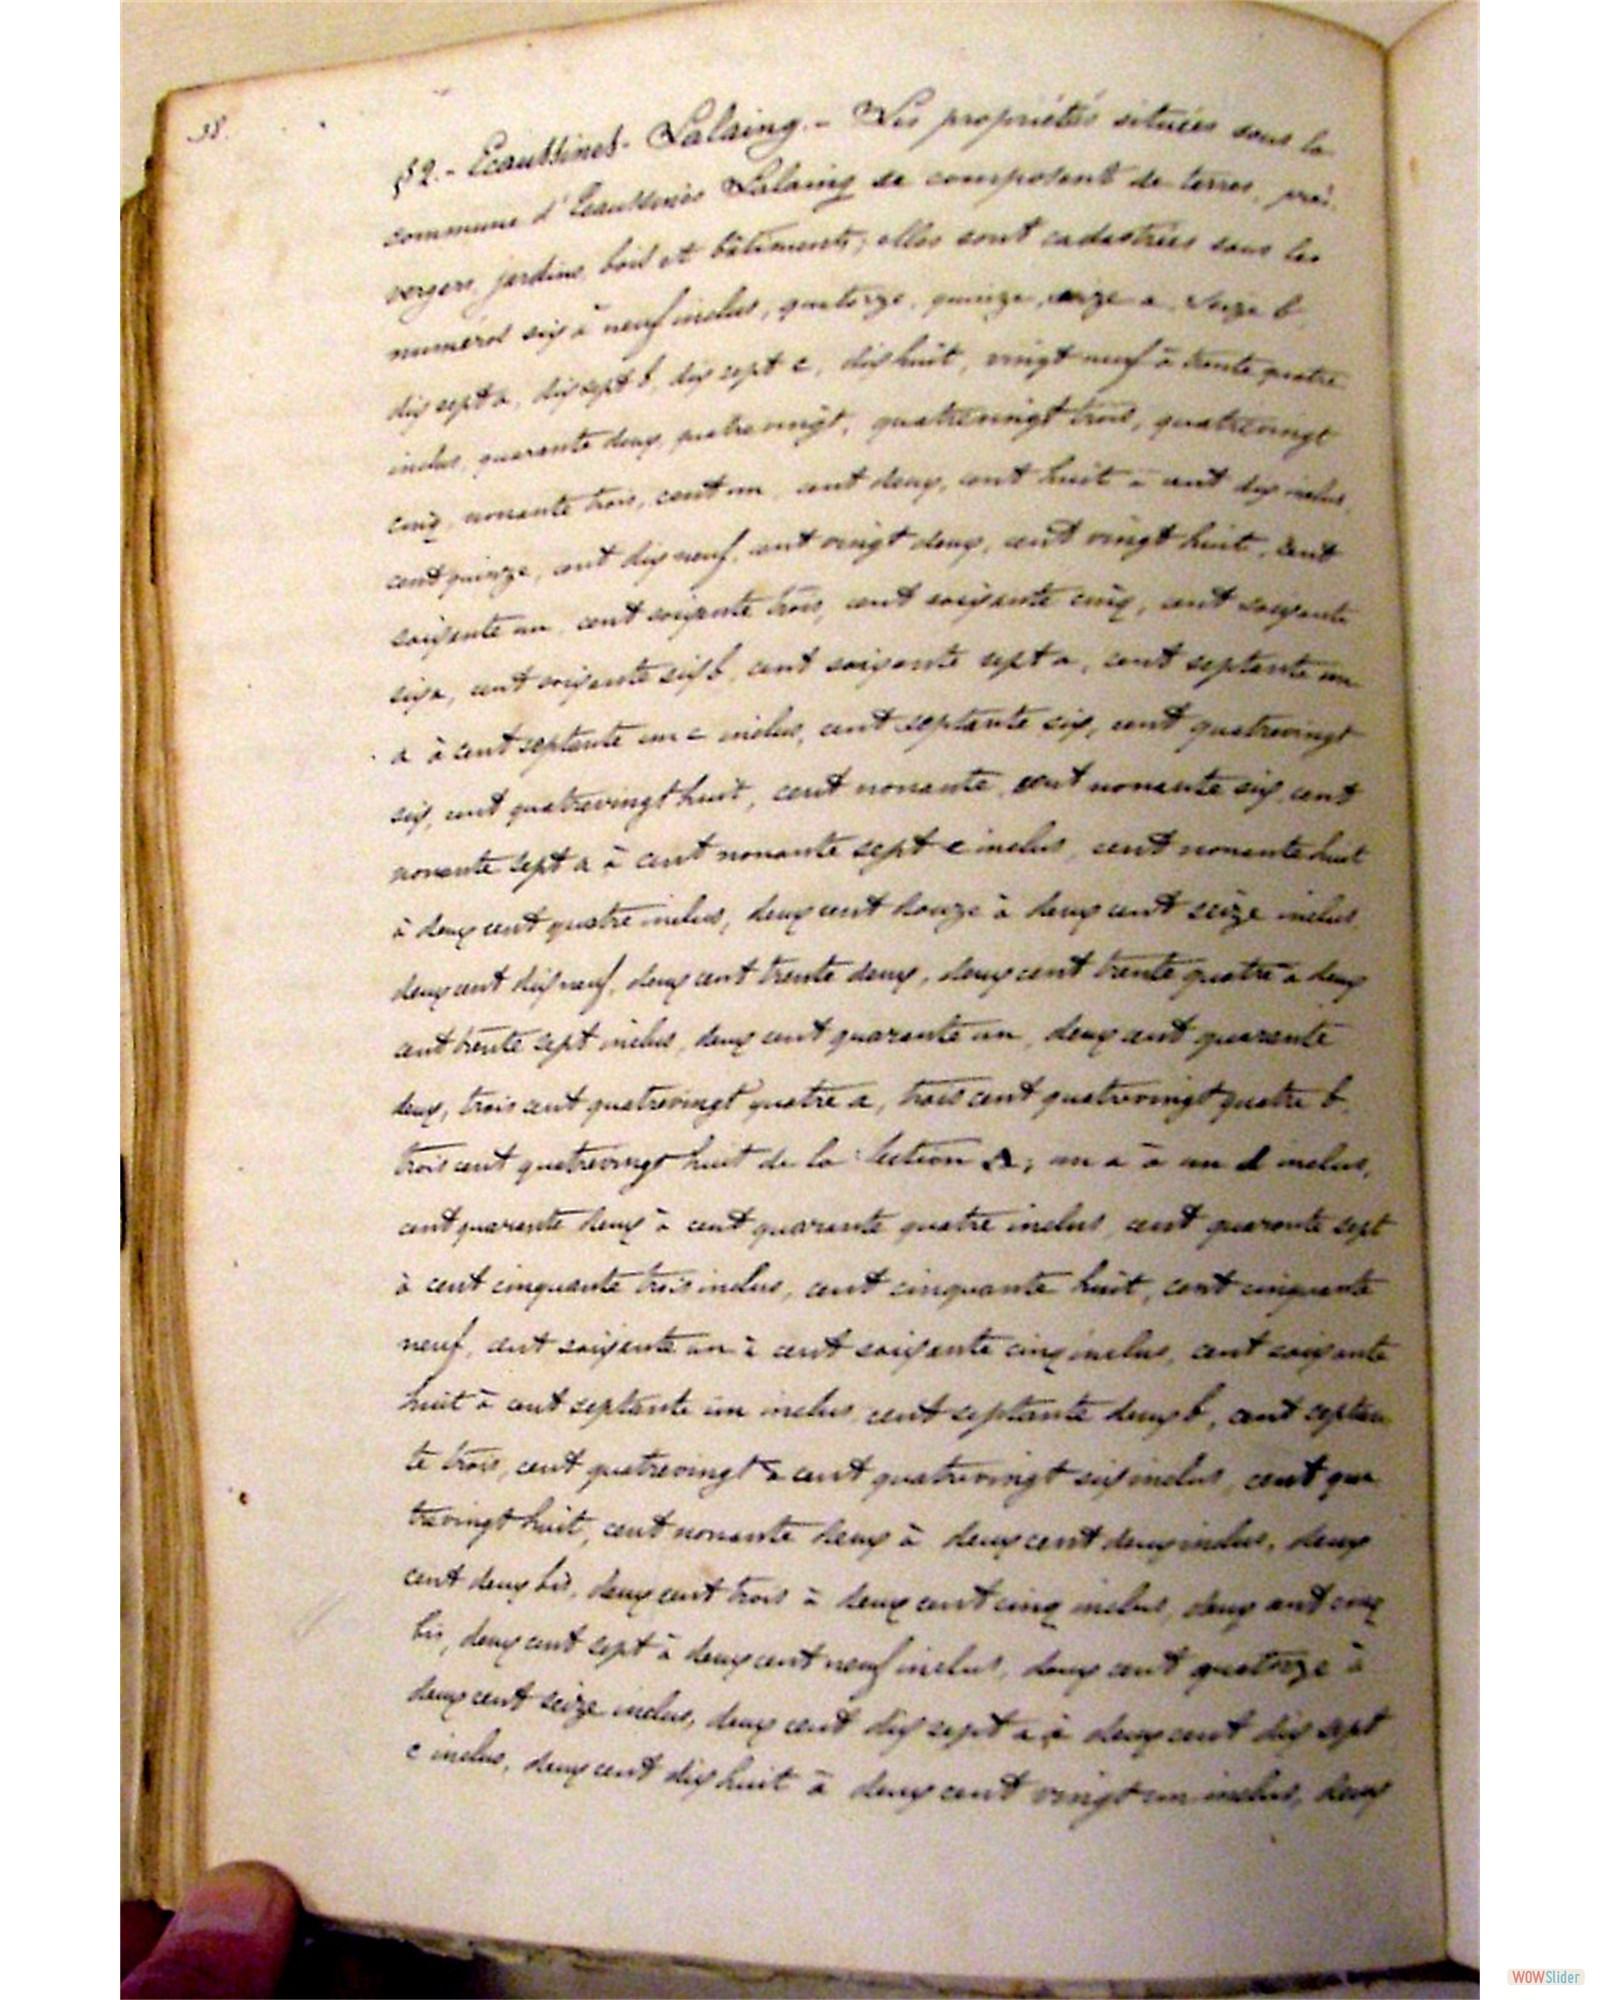 38.
§ 2. - Ecaussines - Lalaing. - Les propriétés situées sous la
commune d'Ecaussines Lalaing se composent de terres, prés,
vergers, jardins, bois et bâtiments; elles sont cadastrées sous les
numéros six à neuf inclus, quatorze, quinze, seize a, seize b,
dix sept a, dix sept b, dix sept c, dix huit, vingt neuf à trente quatre
inclus, quarante deux, quatrevingt, quatrevingt trois, quatrevingt
cinq, nonante trois, cent un, cent deux, cent huit à cent dix inclus,
cent quinze, cent dix neuf, cent vingt deux, cent vingt huit, cent
soixante un, cent soixante trois, cent soixante cinq, cent soixante
six a, cent soixante six b, cent soixante sept a, cent septante un
a à cent septante un c inclus, cent septante six, cent quatrevingt
six, cent quatrevingt huit, cent nonante, cent nonante six, cent
nonante sept a à cent nonante sept c inclus, cent nonante huit
à deux cent quatre inclus, deux cent douze à deux cent seize inclus,
deux cent dix neuf, deux cent trente deux, deux cent trente quatre à deux
cent trente sept inclus, deux cent quarante un, deux cent quarante
deux, trois cent quatrevingt quatre a, trois cent quatrevingt quatre b,
trois cent quatrevingt huit de la Section A; un a à un d inclus,
cent quarante deux à cent quarante quatre inclus, cent quarante sept
à cent cinquante trois inclus, cent cinquante huit, cent cinquante
neuf, cent soixante un à cent soixante cinq inclus, cent soixante
huit à cent septante un inclus, cent septante deux b, cent septan
te trois, cent quatrevingt à cent quatrevingt six inclus, cent qua
trevingt huit, cent nonante deux à deux cent deux inclus, deux
cent deux bis, deux cent trois à deux cent cinq inclus, deux cent cinq
bis, deux cent sept à deux cent neuf inclus, deux cent quatorze à
deux cent seize inclus, deux cent dix sept a à deux cent dix sept
c inclus, deux cent dix huit à deux cent vingt un inclus, deux
WOWSlider